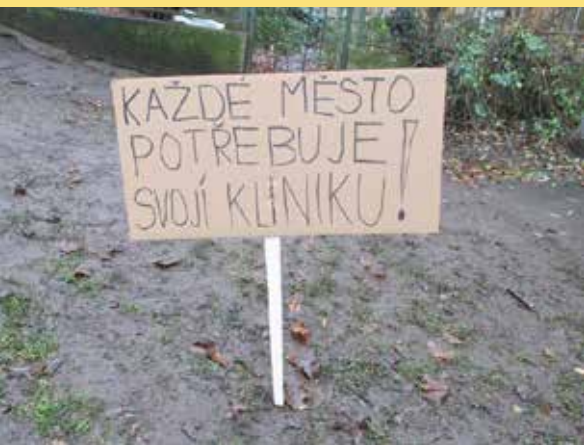 KAŽDÉ MĚSTO
POTŘEBUJE!
SVOJÍ KLiNIKU